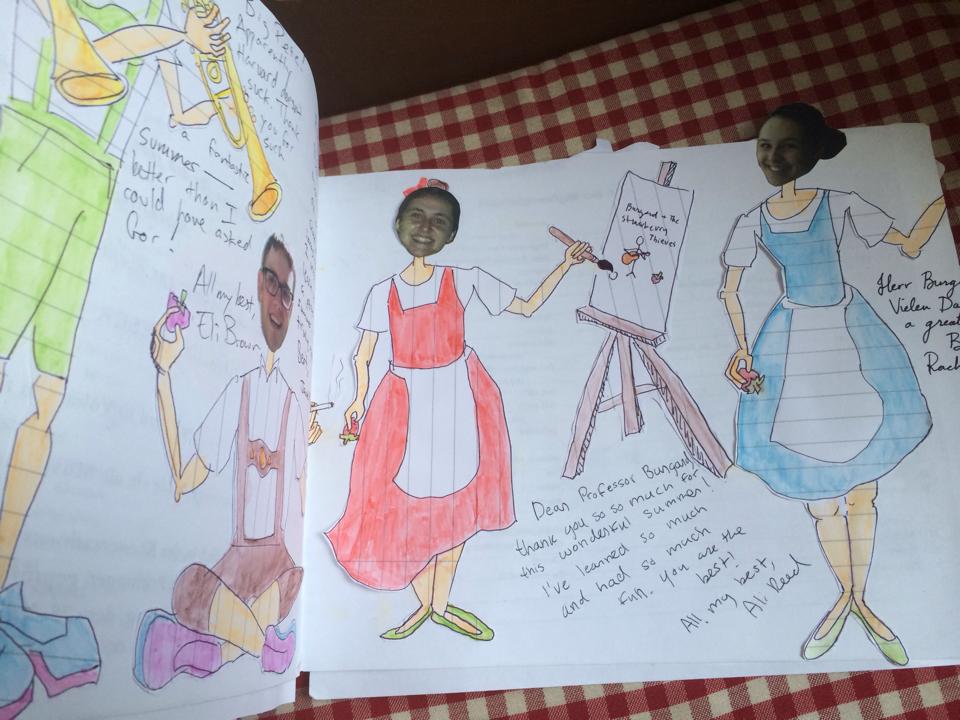 Apparently
Harvard
suck. Think
you for
such
a fantastic
Summer —
better than I
could have asked
for!
All my best,
Eli Brown
Burgard + The
Strawberry
Thieves
Dear Professor Burgard,
thank you so so much for
this wonderful summer!
I've learned so much
and had so much
fun. You are the
best!
All my best,
Ali Reed
Herr Burg
Vielen Da
a great
B
Rach